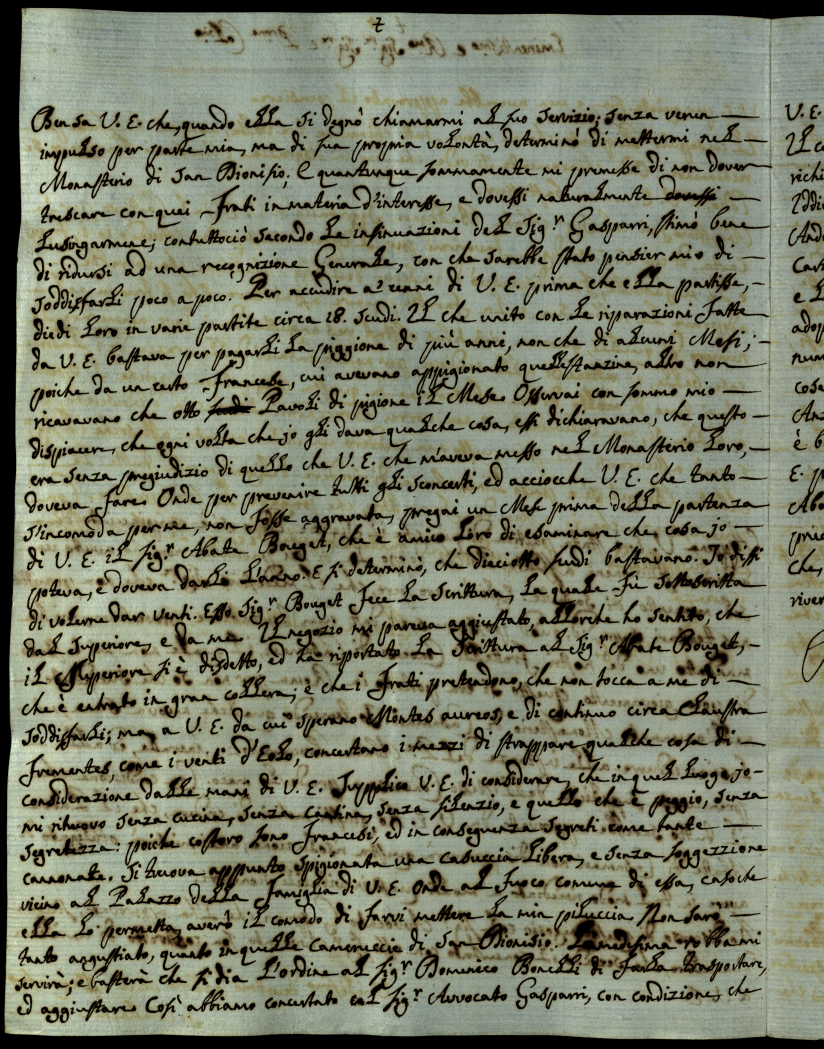 7
Ben sa V. E. che, quando ella si degnò chiamarmi al suo servizio, senza verun
impulso per parte mia, ma di sua propria volontà, determinò di mettermi nel
Monasterio di San Dionisio; E quantunque sommamente mi premesse di non dover
trescare con quei Frati in materia d'interesse, e dovessi naturalmente
lusingarmene; contuttociò secondo le insinuazioni del Sig.r Gasparri, stimò bene
di ridursi ad una recognizione Generale, con che sarebbe stato pensier mio di
soddisfarli poco a poco. Per accudire a' cenni di V. E. prima che ella partisse,
diedi loro in varie partite circa 18. scudi. Il che unito con le riparazioni fatte
da V. E. bastava per pagarli la piggione di più anni, non che di alcuni Mesi;
poiche da un certo Francese, cui avevano appigionato quelle stanzine, altro non
ricavavano che otto Pavoli di pigione il Mese. Osservai con sommo mio
dispiacere, che ogni volta che jo gli dava qualche cosa, essi dichiaravano, che questo
era senza pregiudizio di quello che V. E. che m'aveva messo nel Monasterio loro,
doveva fare. Onde per prevenire tutti gli sconcerti, ed acciocche V. E. che tanto
s'incomoda per me, non fosse aggravata, pregai un Mese prima della partenza
di V. E. il Sig.r Abate Bouget, che è amico loro di esaminare che cosa jo
poteva, e doveva darli l'anno. E si determinò, che dieciotto scudi bastavano. Jo dissi
di volerne dar venti. Esso Sig.r Bouget fece la scrittura, la quale fù sottoscritta
dal Superiore, e da me. Il negozio mi pareva aggiustato, allorche ho sentito, che
il Superiore si è disdetto, ed ha riportato la Scrittura al Sig.r Abate Bouget,
che è entrato in gran collera; e che i Frati pretendono, che non tocca a me di
soddisfarli; ma a V. E. da cui sperano Montes aureos, e di continuo circa Claustra
frementes, come i venti d'Eolo, concertano i mezzi di strappare qualche cosa di
considerazione dalle mani di V. E. Supplico V. E. di considerare, che in quel luogo jo
mi ritruovo senza cucina, senza Cantina, senza silenzio, e quello che è peggio, senza
segretezza: poiche costoro sono Francesi, ed in conseguenza segreti come tante
cannonate. Si truova appunto spigionata una casuccia libera, e senza soggezzione
vicino al Palazzo della Famiglia di V. E. onde al fuoco comune di essa, caso che
ella lo permetta, averò il comodo di farvi mettere la mia piluccia. Non sarò
tanto angustiato, quanto in quelle Cameruccie di San Dionisio. La medesima robba mi
servirà; e basterà che si dia l'ordine al Sig.r Domenico Bonelli di farla trasportare,
ed aggiustare. Così abbiamo concertato col Sig.r Avvocato Gasparri, con condizione, che